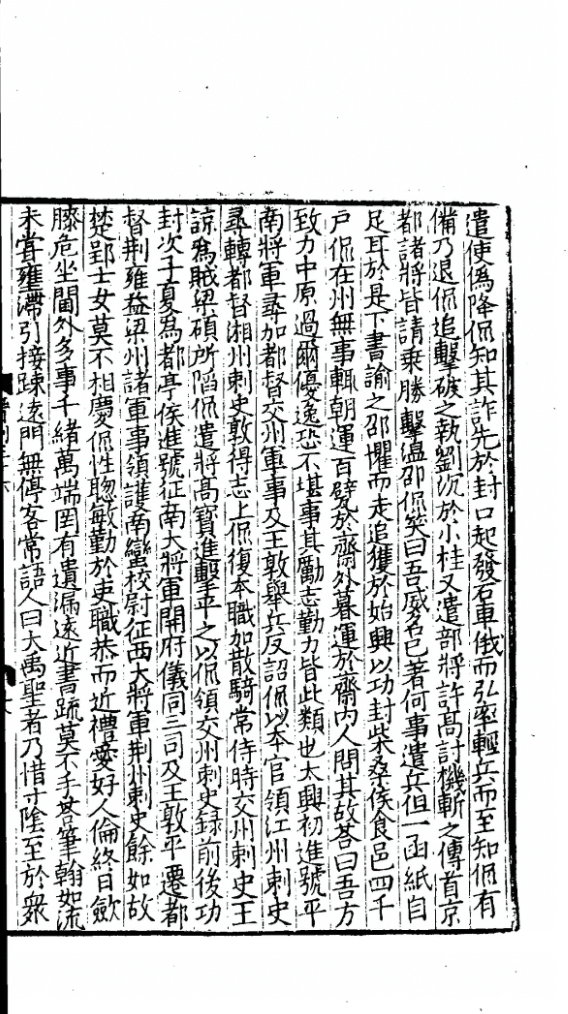 遣使僞降侃知其詐先於封口起發石車俄而弘率輕兵而至知侃有
備乃退侃追擊破之執劉沉於小桂又遣部將許高討機斬之傳首京
都諸將皆請乗勝擊温邵侃笑曰吾威名已著何事遣兵但一函紙自
足耳於是下書諭之邵懼而走追獲於始興以功封柴桑侯食邑四千
户侃在州無事輙朝運百甓於齋外暮運於齋内人問其故荅曰吾方
致力中原過爾優逸恐不堪事其勵志勤力皆此類也太興初進號平
南將軍尋加都督交州軍事及王敦舉兵反詔侃以本官領江州刺史
尋轉都督湘州刺史敦得志上侃復本職加散騎常侍時交州刺史王
諒爲賊梁碩所陷侃遣將高寳進擊平之以侃領交州刺史錄前後功
封次子夏爲都亭侯進號征南大將軍開府儀同三司及王敦平遷都
督荆雍益梁州諸軍事領護南蠻校尉征西大將軍荆州刺史餘如故
楚郢士女莫不相慶侃性聦敏勤於吏職恭而近禮愛好人倫終日歛
膝危坐閫外多事千緒萬端罔有遺漏遠近書疏莫不手荅筆翰如流
未嘗壅滯引接踈逺門無停客常語人曰大禹聖者乃惜寸陰至於衆